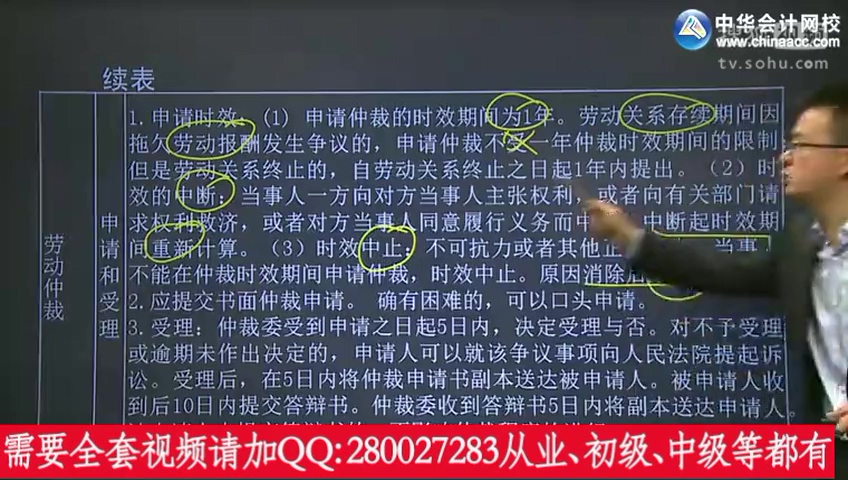 中华会计网校
www.chinaacc.com
tv.sohu.com
续表
劳动仲裁
申请和受理
1. 申请时效。(1) 申请仲裁的时效期间为1年。劳动关系存续期间因
拖欠劳动报酬发生争议的，申请仲裁不受一年仲裁时效期间的限制
但是劳动关系终止的，自劳动关系终止之日起1年内提出。(2) 时
效的中断：当事人一方向对方当事人主张权利，或者向有关部门请
求权利救济，或者对方当事人同意履行义务而中 中断起时效期
间重新计算。(3) 时效中止：不可抗力或者其他正 当事
不能在仲裁时效期间申请仲裁，时效中止。原因消除
2. 应提交书面仲裁申请。 确有困难的，可以口头申请。
3. 受理：仲裁委受到申请之日起5日内，决定受理与否。对不予受理
或逾期未作出决定的，申请人可以就该争议事项向人民法院提起诉
讼。受理后，在5日内将仲裁申请书副本送达被申请人。被申请人收
到后10日内提交答辩书。仲裁委收到答辩书5日内将副本送达申请人。
需要全套视频请加QQ:280027283从业、初级、中级等都有